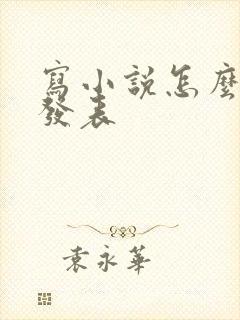 寫小說怎麼
發表
袁永華